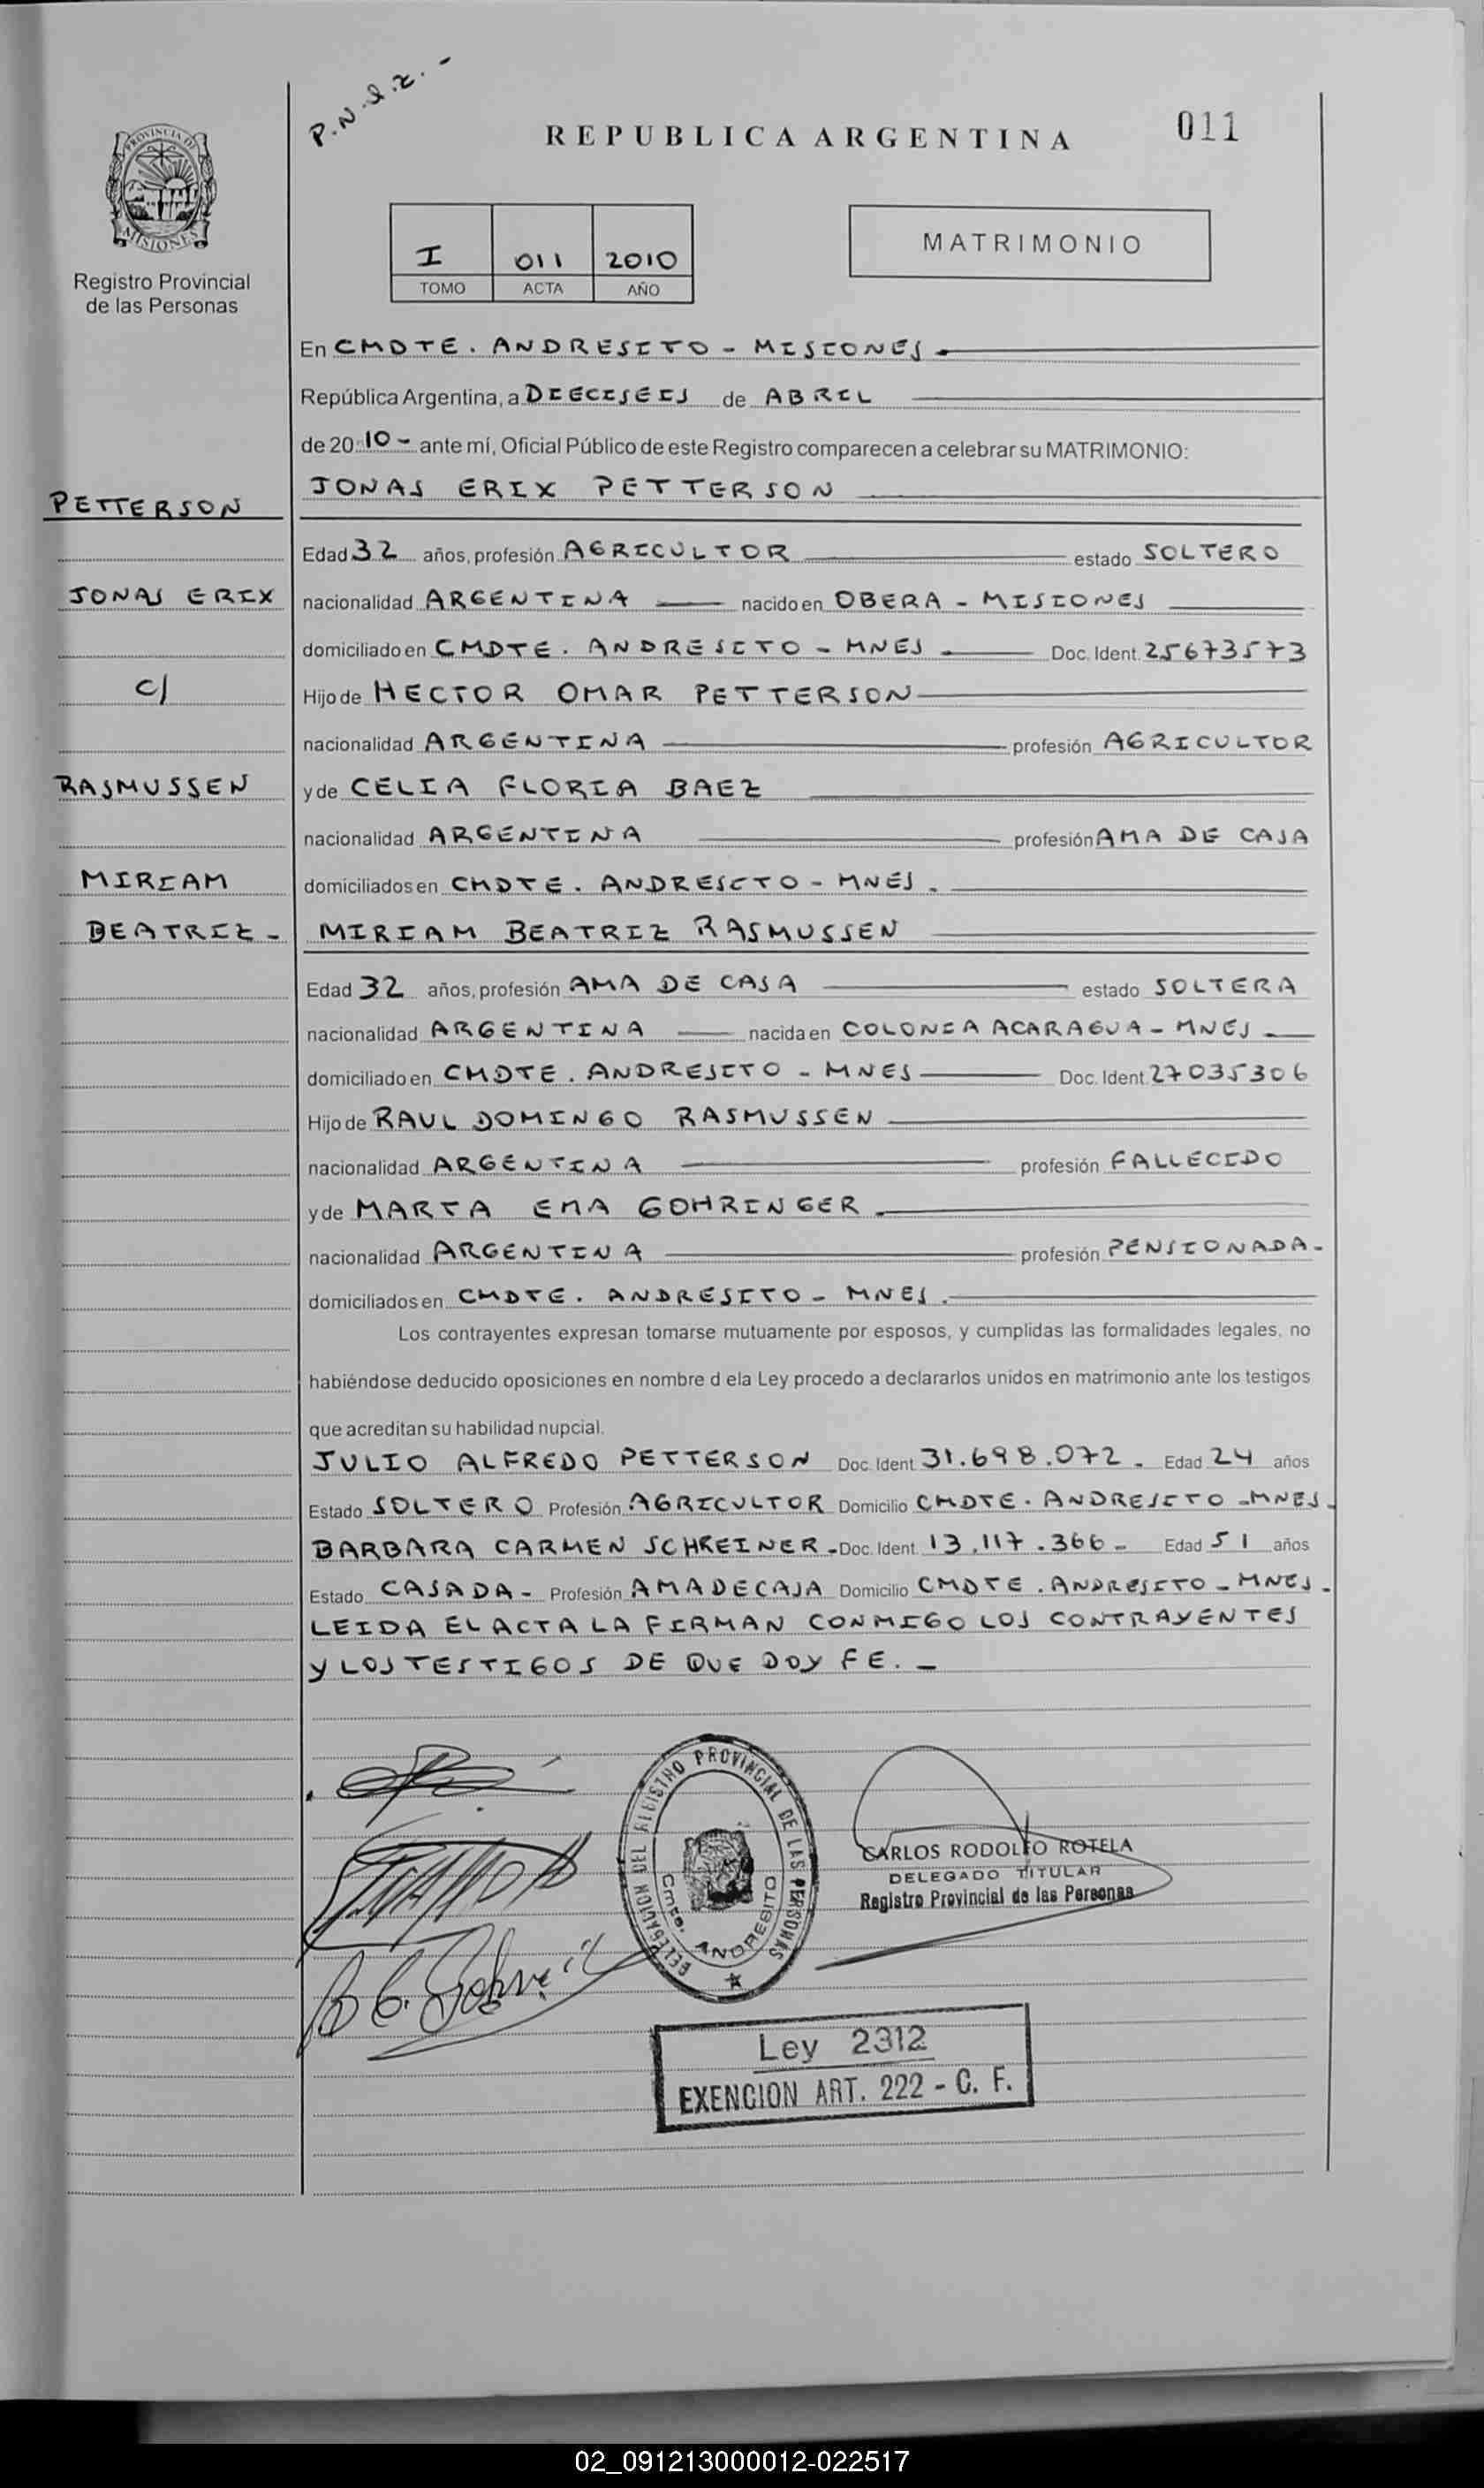 P.N.I.Z. -
REPUBLICA ARGENTINA
011
PROVINCIA DE
MISIONES
Registro Provincial
de las Personas
I 011 2010
TOMO ACTA AÑO
MATRIMONIO
En CMDTE. ANDRESITO - MISIONES.
República Argentina, a DIECISEIS de ABRIL
de 20 10 - ante mí, Oficial Público de este Registro comparecen a celebrar su MATRIMONIO:
JONAS ERIX PETTERSON
PETTERSON
Edad 32 años, profesión AGRICULTOR estado SOLTERO
JONAS ERIX
nacionalidad ARGENTINA nacido en OBERA - MISIONES
domiciliado en CMDTE. ANDRESITO - MNES Doc. Ident. 25673573
C/
Hijo de HECTOR OMAR PETTERSON
nacionalidad ARGENTINA profesión AGRICULTOR
RASMUSSEN
y de CELIA FLORIA BAEZ
nacionalidad ARGENTINA profesión AMA DE CASA
MIRIAM
domiciliados en CMDTE. ANDRESITO - MNES.
BEATRIZ -
MIRIAM BEATRIZ RASMUSSEN
Edad 32 años, profesión AMA DE CASA estado SOLTERA
nacionalidad ARGENTINA nacida en COLONIA ACARAGUA - MNES
domiciliado en CMDTE. ANDRESITO - MNES Doc. Ident. 27035306
Hijo de RAUL DOMINGO RASMUSSEN
nacionalidad ARGENTINA profesión FALLECIDO
y de MARTA EMA GOHRINGER.
nacionalidad ARGENTINA profesión PENSIONADA -
domiciliados en CMDTE. ANDRESITO - MNES.
Los contrayentes expresan tomarse mutuamente por esposos, y cumplidas las formalidades legales, no
habiéndose deducido oposiciones en nombre d ela Ley procedo a declararlos unidos en matrimonio ante los testigos
que acreditan su habilidad nupcial.
JULIO ALFREDO PETTERSON Doc. Ident. 31.698.072. Edad 24 años
Estado SOLTERO Profesión AGRICULTOR Domicilio CMDTE. ANDRESITO - MNES.
BARBARA CARMEN SCHREINER - Doc. Ident. 13.117.366 - Edad 51 años
Estado CASADA - Profesión AMA DE CASA Domicilio CMDTE. ANDRESITO - MNES.
LEIDA EL ACTA LA FIRMAN CONMIGO LOS CONTRAYENTES
Y LOS TESTIGOS DE QUE DOY FE. -
DELEGACION DEL REGISTRO PROVINCIAL DE LAS PERSONAS
Cmte. ANDRESITO
CARLOS RODOLFO ROTELA
DELEGADO TITULAR
Registro Provincial de las Personas
Ley 2312
EXENCION ART. 222 - C. F.
02_091213000012-022517